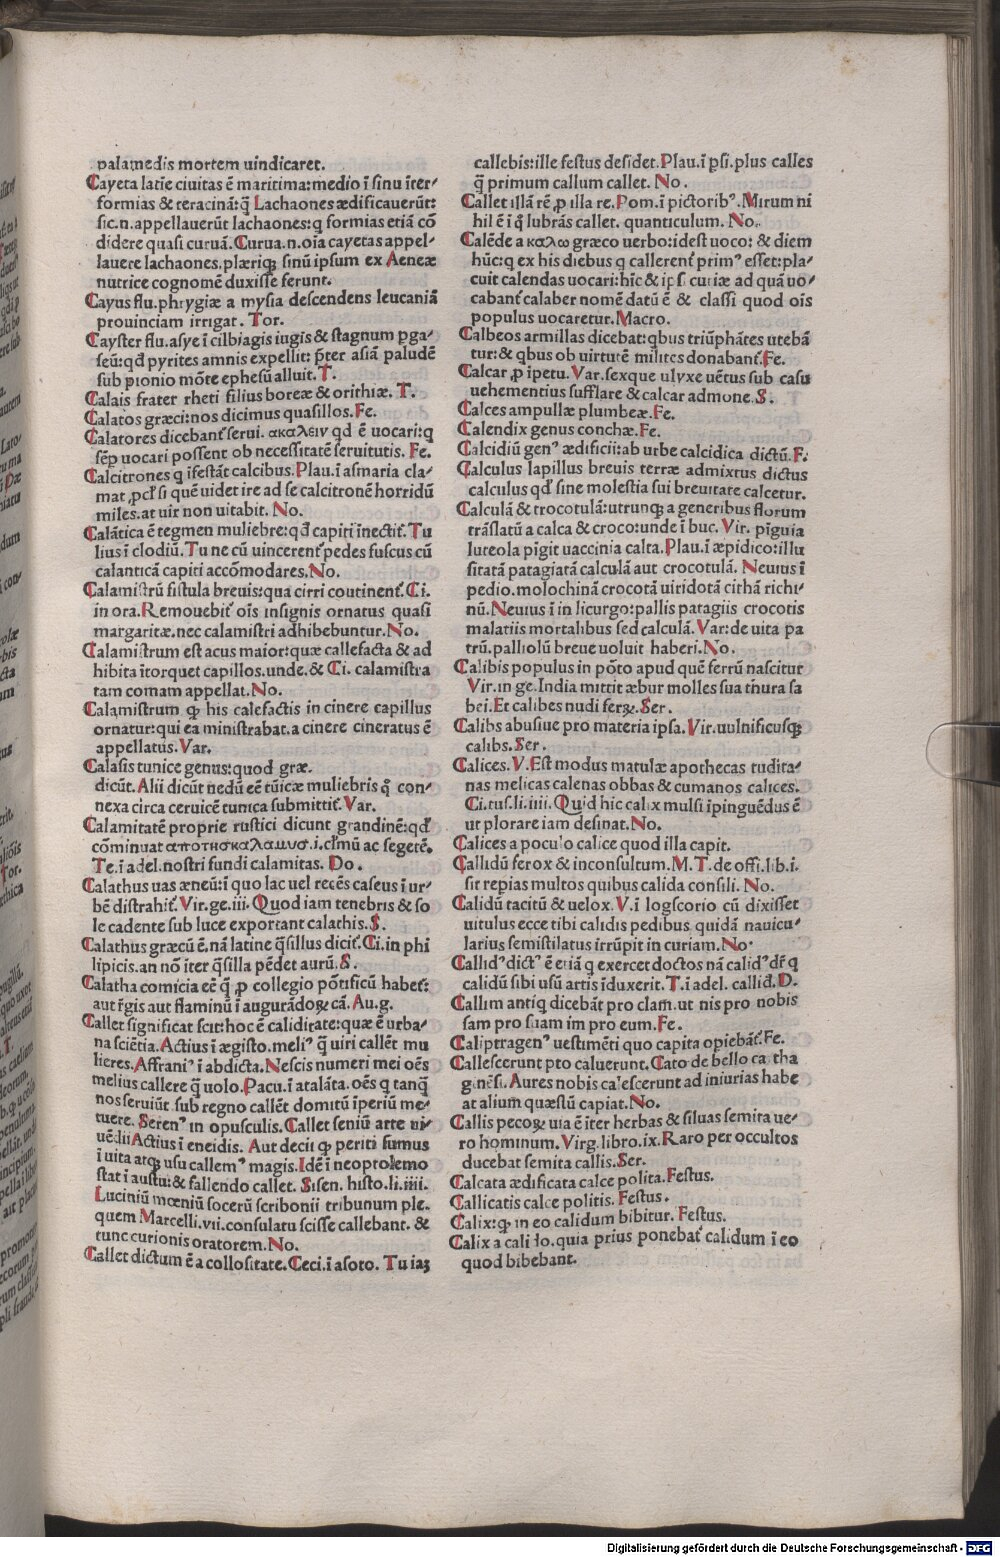 palamedis mortem uindicaret.
Cayeta latie ciuitas ē maritima:medio ī sinu īter-
formias & teracinā:q̄ Lachaones ædificauerūt:
sic.n.appellauerūt lachaones:q formias etiā cō
didere quasi curuā.Curua.n.oīa cayetas appel-
lauere lachaones.plæriqꝫ sinū ipsum ex Aeneæ
nutrice cognomē duxisse ferunt.
Cayus flu.phrygiæ a mysia descendens leucaniā
prouinciam irrigat. Tor.
Cayster flu.asye ī cilbiagis iugis & stagnum pga-
seū:qd pyrites amnis expellit: pter asiā paludē
sub pionio mōte ephesū alluit.T.
Calais frater rheti filius boreæ & orithiæ. T.
Calatos græci:nos dicimus quasillos.Fe.
Calatores dicebant serui. ακαλειν qd ē uocari:q
sēp uocari possent ob necessitatē seruitutis. Fe.
Calcitrones q īfestāt calcibus.Plau.ī asmaria cla-
mat ꝓcl si quē uidet ire ad se calcitronē horridū
miles.at uir non uitabit. No.
Calātica ē tegmen muliebre:qd capiti īnectit.Tu
lius ī clodiū.Tu ne cū uincerent pedes fuscus cū
calanticā capiti accōmodares.No.
Calamistrū fistula breuis:qua cirri continent.Ci.
in ora.Remouebit oīs insignis ornatus quasi
margaritæ.nec calamistri adhibebuntur.No.
Calamistrum est acus maior:quæ callefacta & ad
hibita ītorquet capillos.unde.& Ci. calamistra
tam comam appellat.No.
Calamistrum ꝙ his calefactis in cinere capillus
ornatur:qui ea ministrabat.a cinere cineratus ē
appellatus.Var.
Calasis tunice genus:quod græ.
dicūt.Alii dicūt nedū eē tūicæ muliebris q̄ con-
nexa circa ceruicē tunica submittit.Var.
Calamitatē proprie rustici dicunt grandinē:qd
cōminuat αποτησκαλαμυσ.i.clmū ac segetē.
Te.ī adel.nostri fundi calamitas. Do.
Calathus uas æneū:ī quo lac uel recēs caseus ī ur-
bē distrahit.Vir.ge.iii.Quod iam tenebris & so
le cadente sub luce exportant calathis.S.
Calathus græcū ē.nā latine q̄sillus dicit.Ci.in phi
lipicis.an nō īter q̄silla pēdet aurū.S.
Calatha comicia eē q̄ ꝓ collegio pōtificū habet:
aut rgis aut flaminū ī augurādoꝝ cā.Au.g.
Callet significat scit:hoc ē caliditate:quæ ē urba-
na sciētia.Actius ī ægisto.meliꝰ q̄ uiri callēt mu
lieres.Affraniꝰ ī abdicta.Nescis numeri mei oēs
melius callere q̄ uolo.Pacu.ī atalāta.oēs q tanq̄
nos seruiūt.sub regno callēt domitū īperiū me-
tuere. Serenꝰ in opusculis. Callet seniū arte ui-
uēdi Actius ī eneidis. Aut decit ꝙ periti sumus
ī uita atqꝫ usu callemꝰ magis.Idē ī neoptolemo
stat ī austu:& fallendo callet. Sisen. histo.li.iiii.
Luciniū mœniū socerū scribonii tribunum ple.
quem Marcelli.vii.consulatu scisse callebant. &
tunc curionis oratorem.No.
Callet dictum ē a collositate.Ceci.ī asoto. Tu iaꝫ
callebis:ille festus desidet.Plau.ī psi.plus calles
q̄ primum callum callet. No.
Callet illā rē ꝓ illa re.Pom.ī pictoribꝰ.Mirum ni
hil ē ī q̄ lubrās callet. quanticulum. No.
Calēde a καλω græco uerbo:idest uoco: & diem
hūc:q ex his diebus q callerent primꝰ esset:pla-
cuit calendas uocari:hīc & ipsi curiæ ad quā uo-
cabant calaber nomē datū ē & classi quod oīs
populus uocaretur.Macro.
Calbeos armillas dicebāt:qbus triūphātes utebā
tur:& qbus ob uirtutē milites donabant.Fe.
Calcar ꝓ īpetu.Var.sexque ulyxe uētus sub casu
uehementius sufflare & calcar admone.S.
Calces ampullæ plumbeæ.Fe.
Calendix genus conchæ.Fe.
Calcidiū genꝰ ædificii:ab urbe calcidica dictū.F.
Calculus lapillus breuis terræ admixtus dictus
calculus qd sine molestia sui breuitate calcetur.
Calculā & trocotulā:utrunqꝫ a generibus florum
trāslatū a calca & croco:unde ī buc. Vir. pīguia
luteola pīgit uaccinia calta.Plau.ī æpidico:illu
sitatā patagiatā calculā aut crocotulā. Neuius ī
pedio.molochinā crocotā uiridotā cithā richi-
nū.Neuius ī in licurgo:pallis patagiis crocotis
malatiis mortalibus sed calculā.Var:de uita pa
trū.palliolū breue uoluit haberi.No.
Calibis populus in pōto apud quē ferrū nascitur
Vir.in ge.India mittit æbur molles sua thura sa
bei.Et calibes nudi ferꝝ.Ser.
Calibs abusiue pro materia ipsa.Vir.uulnificusqꝫ
calibs.Ser.
Calices.V.Est modus matulæ apothecas tudita-
nas melicas calenas obbas & cumanos calices.
Ci.tus.li.iiii.Quid hic calix mulsi īpinguēdus ē
ut plorare iam desinat.No.
Calices a poculo calice quod illa capit.
Callidū ferox & inconsultum.M.T.de offi.lib.i.
sit repias multos quibus calida consili. No.
Calidū tacitū & uelox.V.ī logscorio cū dixisset
uitulus ecce tibi calidis pedibus quidā nauicu-
larius semistilatus irrūpit in curiam.No.
Callidꝰ dictꝰ ē etiā q exercet doctos nā calidꝰ dr q
calidū sibi usū artis īduxerit.T.ī adel.callid.D.
Callim antiq dicebāt pro clam.ut nis pro nobis
sam pro suam im pro eum.Fe.
Caliptragenꝰ uestimēti quo capita opiebāt.Fe.
Callescerunt pto caluerunt.Cato de bello cartha
ginēsi.Aures nobis calescerunt ad iniurias habe
at alium quæstū capiat.No.
Callis pecoꝝ uia ē īter herbas & siluas semita ue-
ro hominum.Virg.libro.ix.Raro per occultos
ducebat semita callis.Ser.
Calcata ædificata calce polita.Festus.
Callicatis calce politis. Festus.
Calix:ꝙ in eo calidum bibitur. Festus.
Calix a calido.quia prius ponebat calidum ī eo
quod bibebant.
Digitalisierung gefördert durch die Deutsche Forschungsgemeinschaft - DFG